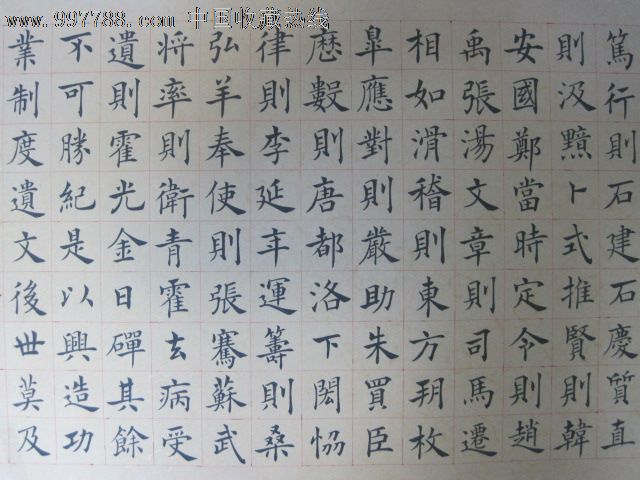 www.997788.com 中国收藏热线
篤行則石建石慶質直
則汲黯卜式推賢則韓
安國鄭當時定令則趙
禹張湯文章則司馬遷
相如滑稽則東方朔枚
皐應對則嚴助朱買臣
歷數則唐都洛下閎恊
律則李延年運籌則桑
弘羊奉使則張騫蘇武
将率則衛青霍去病受
遺則霍光金日磾其餘
不可勝紀是以興造功
業制度遺文後世莫及